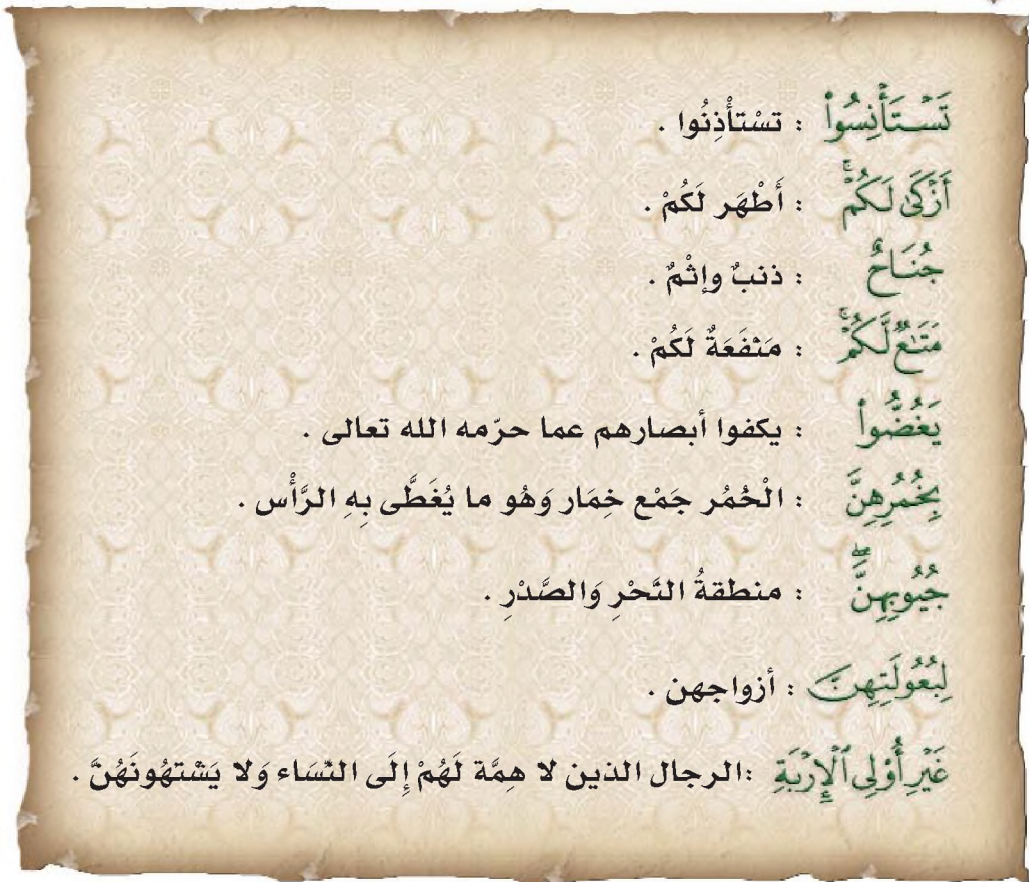 تَسْتَأْنِسُوا۟ : تسْتأْذِنُوا .
أَزْكَىٰ لَكُمْ ۚ : أَطْهَر لَكُمْ .
جُنَاحٌ : ذنبٌ وإثْمٌ .
مَتَـٰعٌ لَّكُمْ ۚ : مَنْفَعَةٌ لَكُمْ .
يَغُضُّوا۟ : يكفوا أبصارهم عما حرّمه الله تعالى .
بِخُمُرِهِنَّ : الْخُمُر جَمْع خِمَار وَهُو ما يُغَطَّى بِهِ الرَّأْس .
جُيُوبِهِنَّ ۖ : منطقةُ النَّحْرِ وَالصَّدْرِ .
لِبُعُولَتِهِنَّ : أزواجهن .
غَيْرِ أُو۟لِى ٱلْإِرْبَةِ :الرجال الذين لا هِمَّة لَهُمْ إِلَى النِّسَاء وَلا يَشْتهُونَهُنَّ .